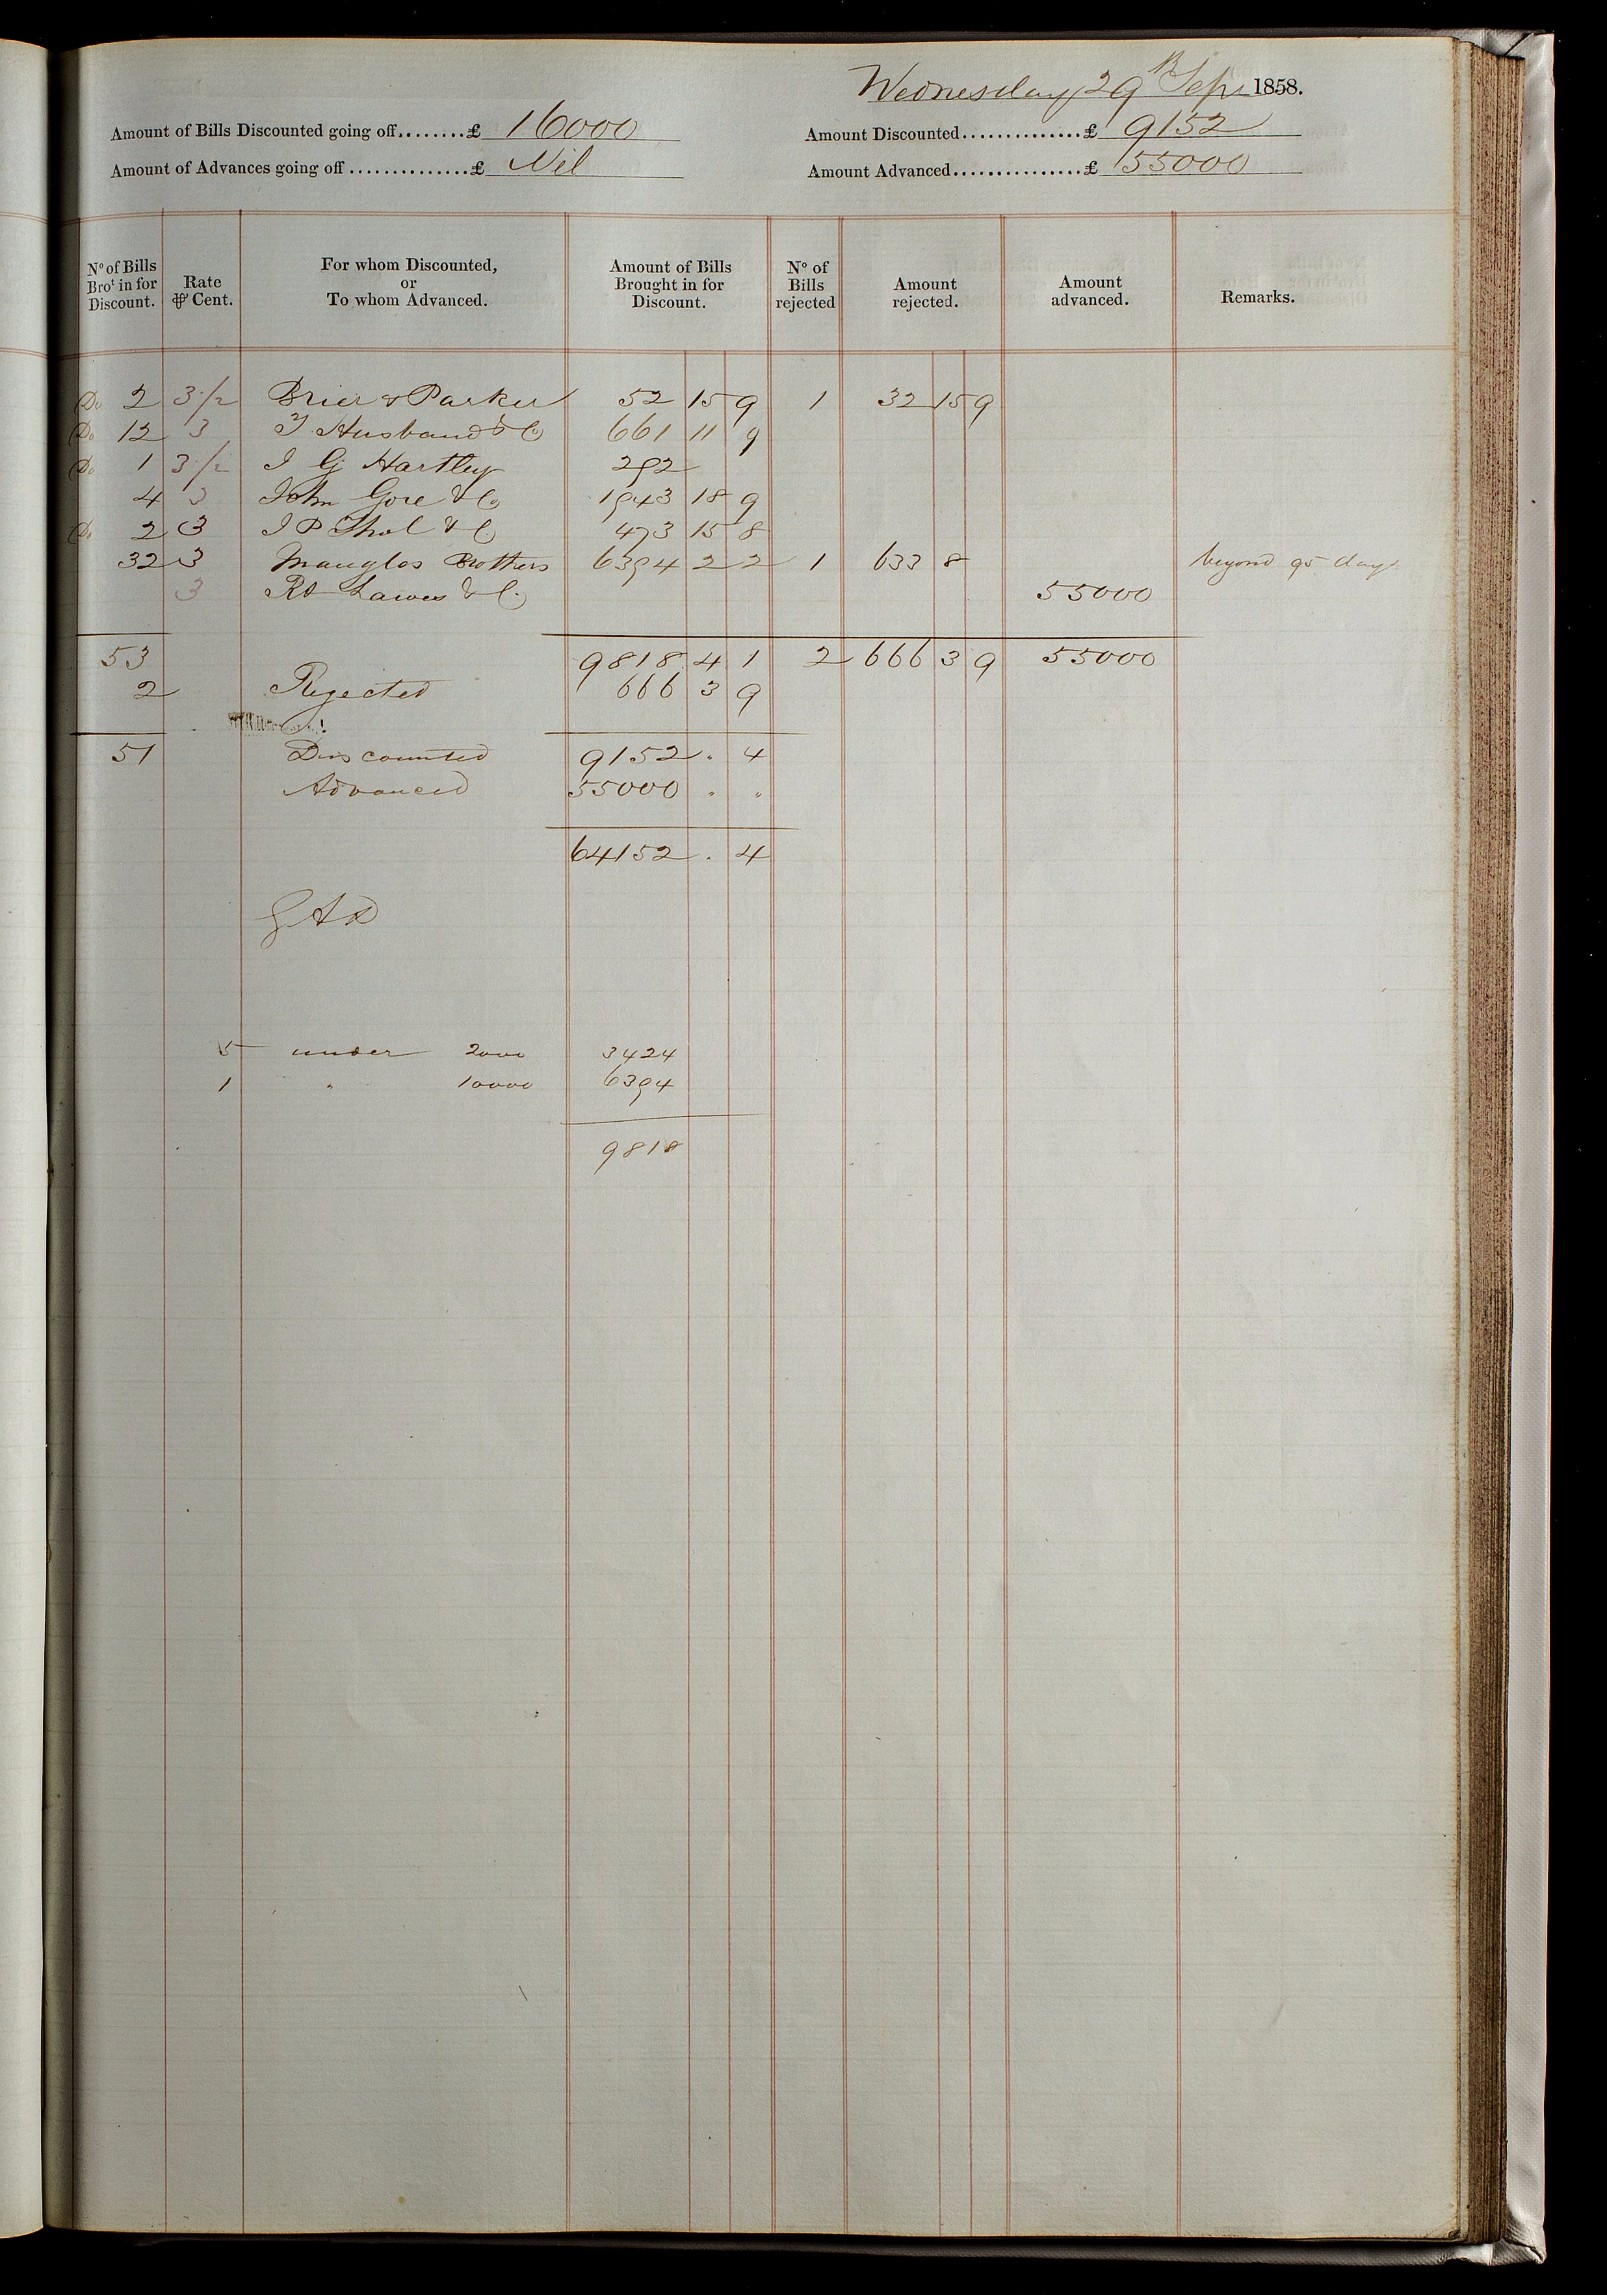 Wednesday 29th Sepr 1858.
Amount of Bills Discounted going off........£ 16000
Amount Discounted..............£ 9152
Amount of Advances going off..............£ Nil
Amount Advanced...............£ 55000
No of Bills Brot in for Discount. Rate ⅌ Cent. For whom Discounted, or To whom Advanced. Amount of Bills Brought in for Discount. No of Bills rejected Amount rejected. Amount advanced. Remarks.
Do 2 3 1/2 Brier & Parker 52 15 9 1 32 15 9
Do 12 3 T. Husband & Co 661 11 9
Do 1 3 1/2 J G Hartley 292
4 3 John Gore & Co 1943 18 9
Do 2 3 J P Thol & Co 473 15 8
32 3 Mangles Brothers 6394 2 2 1 633 8 beyond 95 days
3 Rt Lawes & Co 55000
53 9818 4 1 2 666 3 9 55000
2 Rejected 666 3 9
51 Discounted 9152 . 4
Advanced 55000 " "
64152 . 4
5 under 2000 3424
1 " 10000 6394
9818